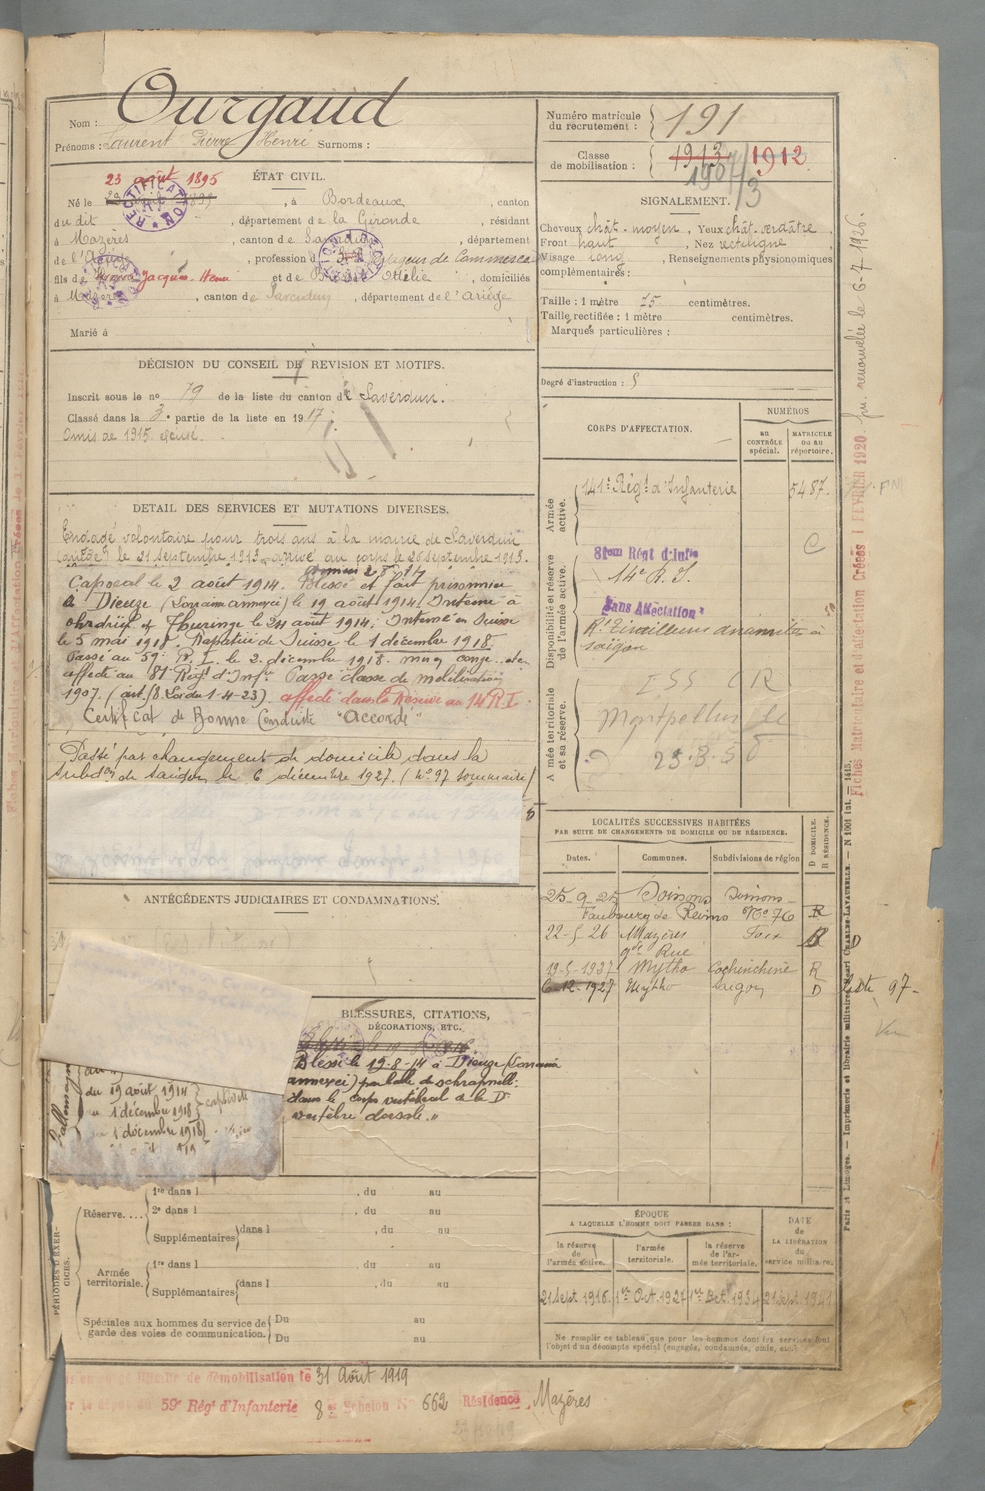 Nom : Ourgaud
Prénoms : Laurent Pierre Henri Surnoms :
Numéro matricule du recrutement : 191
Classe de mobilisation : 1913 1907/3 1912
ÉTAT CIVIL.
23 août 1895
Né le , à Bordeaux, canton
du dit , département de la Gironde, résidant
à Mazères , canton de Saverdun, département
de l' , profession d de Commerce
fils de Jacques Henri et de Amélie , domiciliés
à Mazères , canton de Saverdun , département de l'Ariège
Marié à
RECTIFICATION
SIGNALEMENT.
Cheveux chât. moyen, Yeux chât. verdâtre
Front haut , Nez rectiligne
Visage long , Renseignements physionomiques
complémentaires :
Taille : 1 mètre 75 centimètres.
Taille rectifiée : 1 mètre centimètres.
Marques particulières :
Degré d'instruction : 5
DÉCISION DU CONSEIL DE REVISION ET MOTIFS.
Inscrit sous le no 79 de la liste du canton de Saverdun.
Classé dans la 3e partie de la liste en 1917.
Omis de 1915.
DETAIL DES SERVICES ET MUTATIONS DIVERSES.
Engagé volontaire pour trois ans à la mairie de Saverdun
(Ariège) le 21 septembre 1913, arrivé au corps le 26 septembre 1913.
Caporal le 2 août 1914. Blessé et fait prisonnier
à Dieuze (Lorraine annexée) le 19 août 1914. Interné à
Ohrdruf Thuringe le 24 août 1914. Interné en Suisse
le 5 mai 1918. Rapatrié de Suisse le 1 décembre 1918.
Passé au 59e R.I. le 2 décembre 1918.
affecté au 81e Régt d'Infie. Passé classe de mobilisation
1907. (art. 58 Loi du 1-4-23). affecté dans la Réserve au 14 R.I.
Certificat de Bonne Conduite "Accordé"
Passé par changement de domicile dans la
subdon de Saïgon le 6 décembre 1927. (No 97 sommaire)
CORPS D'AFFECTATION.
NUMÉROS
au CONTRÔLE spécial.
MATRICULE ou au répertoire.
Armée active.
141e Régt d'Infanterie 5487.
Disponibilité et réserve de l'armée active.
81eme Régt d'Infie
14e R.I.
Sans Affectation
Rt Tirailleurs annamites à
Saïgon
Armée territoriale et sa réserve.
Montpellier
23.3.50
LOCALITÉS SUCCESSIVES HABITÉES
PAR SUITE DE CHANGEMENTS DE DOMICILE OU DE RÉSIDENCE.
D DOMICILE.
R RÉSIDENCE.
Dates. Communes. Subdivisions de région
25-9-25 Soissons Soissons
Faubourg de Reims No 76 R
22-5-26 Mazères Foix R D
gde Rue
19-5-1927 Mytho Cochinchine R
6-12-1927 Mytho Saigon D Liste 97-
ANTÉCÉDENTS JUDICIAIRES ET CONDAMNATIONS.
BLESSURES, CITATIONS,
DÉCORATIONS, ETC.
Blessé le 19-8-14 à Dieuze (Lorraine
annexée) par balle de schrapnell:
dans le corps vertébral de la D
vertèbre dorsale."
du 19 août 1914
au 1 décembre 1918 captivité
1 décembre 1918
PÉRIODES D'EXERCICES.
Réserve....
1re dans l , du au
2e dans l , du au
Supplémentaires dans l , du au
Armée territoriale.
1re dans l , du au
Supplémentaires dans l , du au
Spéciales aux hommes du service de garde des voies de communication.
Du au
Du au
ÉPOQUE
A LAQUELLE L'HOMME DOIT PASSER DANS :
la réserve de l'armée active.
l'armée territoriale.
la réserve de l'armée territoriale.
DATE de LA LIBÉRATION du service militaire.
21 Sept. 1916. 1er Oct. 1927 1er Oct. 1934 21 Sept. 1941
Ne remplir ce tableau que pour les hommes dont les services font
l'objet d'un décompte spécial (engagés, condamnés, omis, etc.)
de démobilisation le 31 Août 1919
59e Régt d'Infanterie 8e Echelon No 662 Résidence Mazères
renouvelée le 6-7-1926.
Fiches Matriculaire et d'affectation Créées 1 FEVRIER 1920.
Paris et Limoges. — Imprimerie et librairie militaires Henri CHARLES-LAVAUZELLE. — N 1001 int. — 1415.